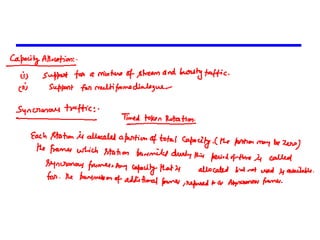 Capacity Allocation:-
(i) Support for a mixture of stream and bursty traffic.
(ii) Support for multiframe dialogue.
Syncronous traffic:-
Timed token Rotation
Each station is allocated a portion of total capacity (the portion may be zero)
the frames which station transmits during this period of time is called
syncronous frames. Any capacity that is allocated but not used is available
for the transmission of additional frames, refered to as Asyncronous frames.